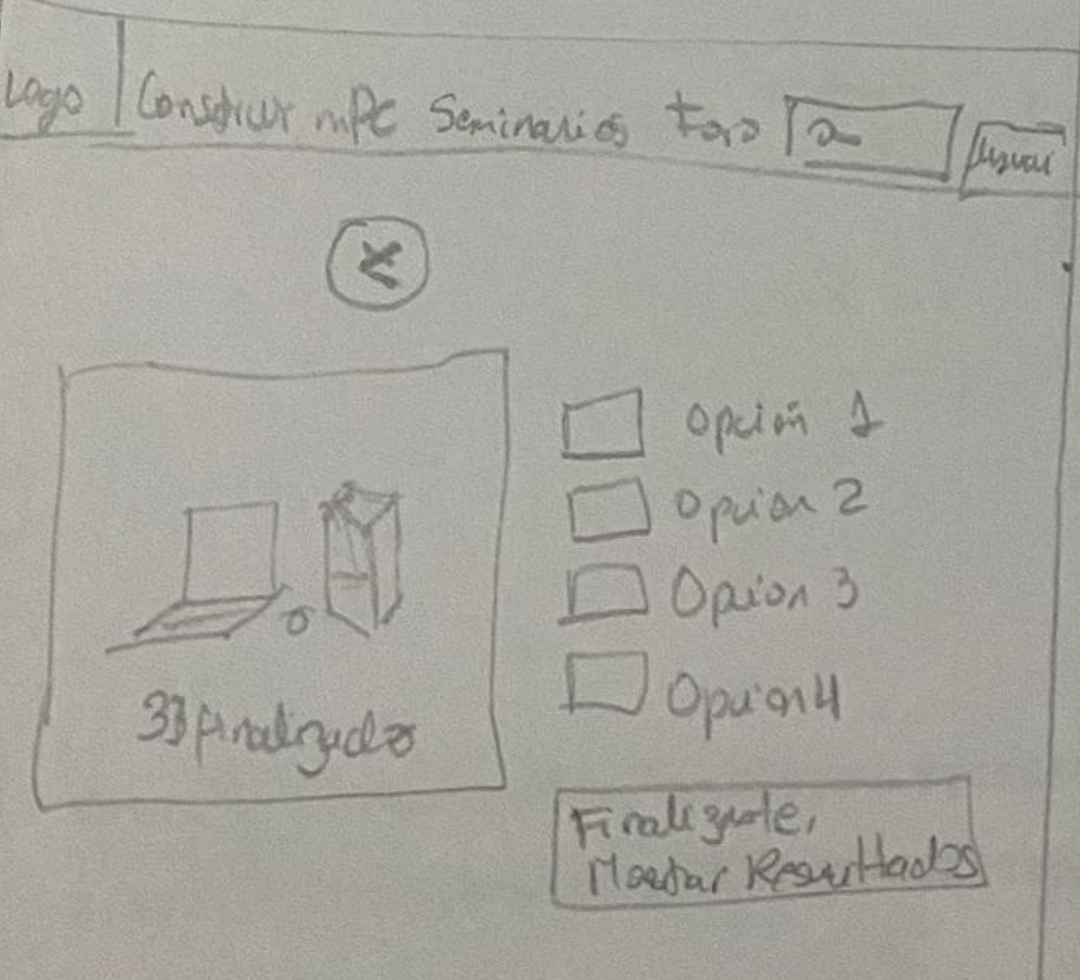 Logo Construir mPC Seminarios Foro Usuar
Opción 1
Opcion 2
Opcion 3
Opcion 4
3D finalizado
Mostar Resulttados